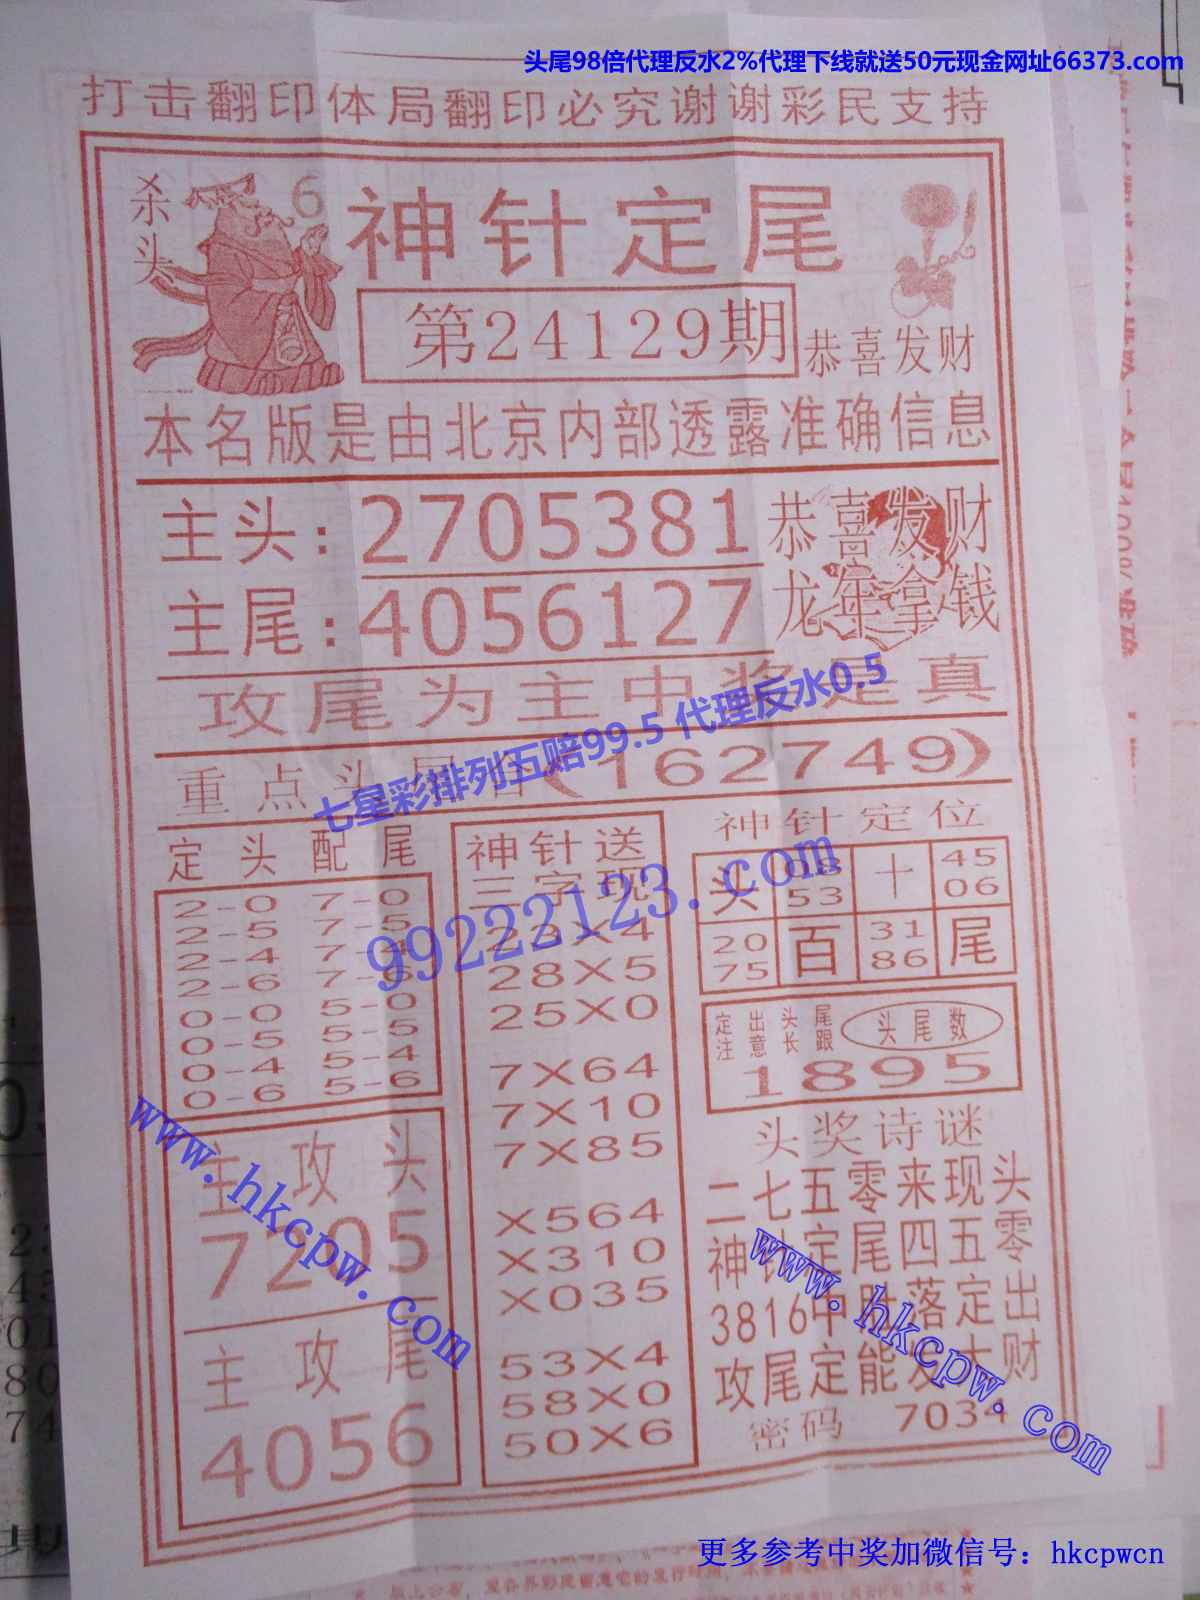 头尾98倍代理反水2%代理下线就送50元现金网址66373.com
打击翻印体局翻印必究谢谢彩民支持
杀头 6
神针定尾
第24129期
恭喜发财
本名版是由北京内部透露准确信息
主头：2705381
恭喜发财
主尾：4056127
龙年拿钱
攻尾为主中奖是真
七星彩排列五赔99.5 代理反水0.5
重点头尾 (162749)
定头配尾
2-0 7-0
2-5 7-5
2-4 7-4
2-6 7-6
0-0 5-0
0-5 5-5
0-4 5-4
0-6 5-6
主攻头
7205
主攻尾
4056
神针送
三字现
23X4
28X5
25X0
7X64
7X10
7X85
X564
X310
X035
53X4
58X0
50X6
99222123.com
神针定位
头 08 53 十 45 06
20 75 百 31 86 尾
定出头尾
注意长跟
头尾数
1895
头奖诗谜
二七五零来现头
神针定尾四五零
3816中胜落定出
攻尾定能发大财
密码 7034
www.hkcpw.com
www.hkcpw.com
更多参考中奖加微信号：hkcpwcn